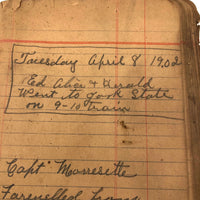 Tuesday April 8 1902
Ed Alice & Gerald
Went to York State
on 9-10 train
Capt Morresette
Farewelled from